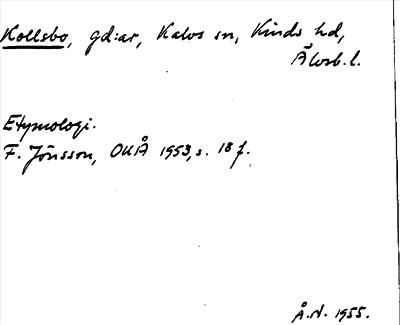 Kollsbo, gd:ar, Kalvs sn, Kinds hd,
Älvsb. l.
Etymologi.
F. Jönsson, OUÅ 1953, s. 18 f.
Å. N. 1955.